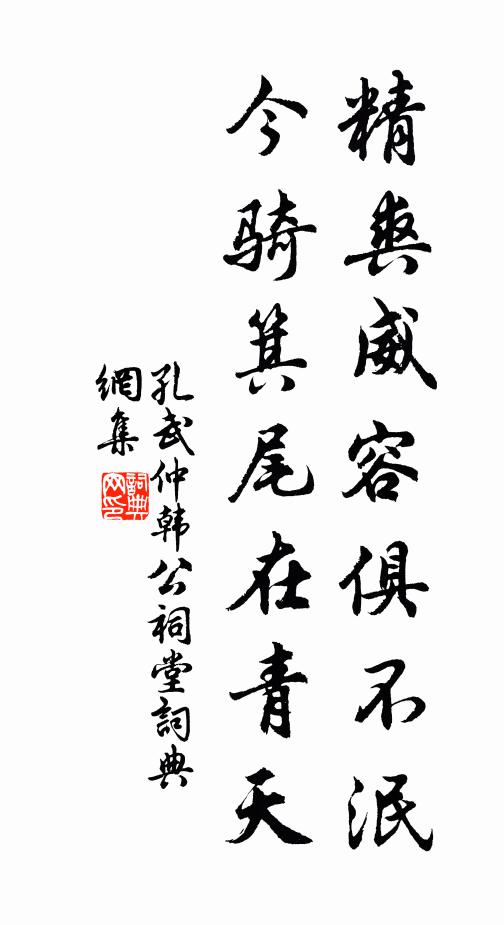 精爽威容俱不泯
今骑箕尾在青天
孔武仲韩公祠堂詞典
網集
詞典
网印